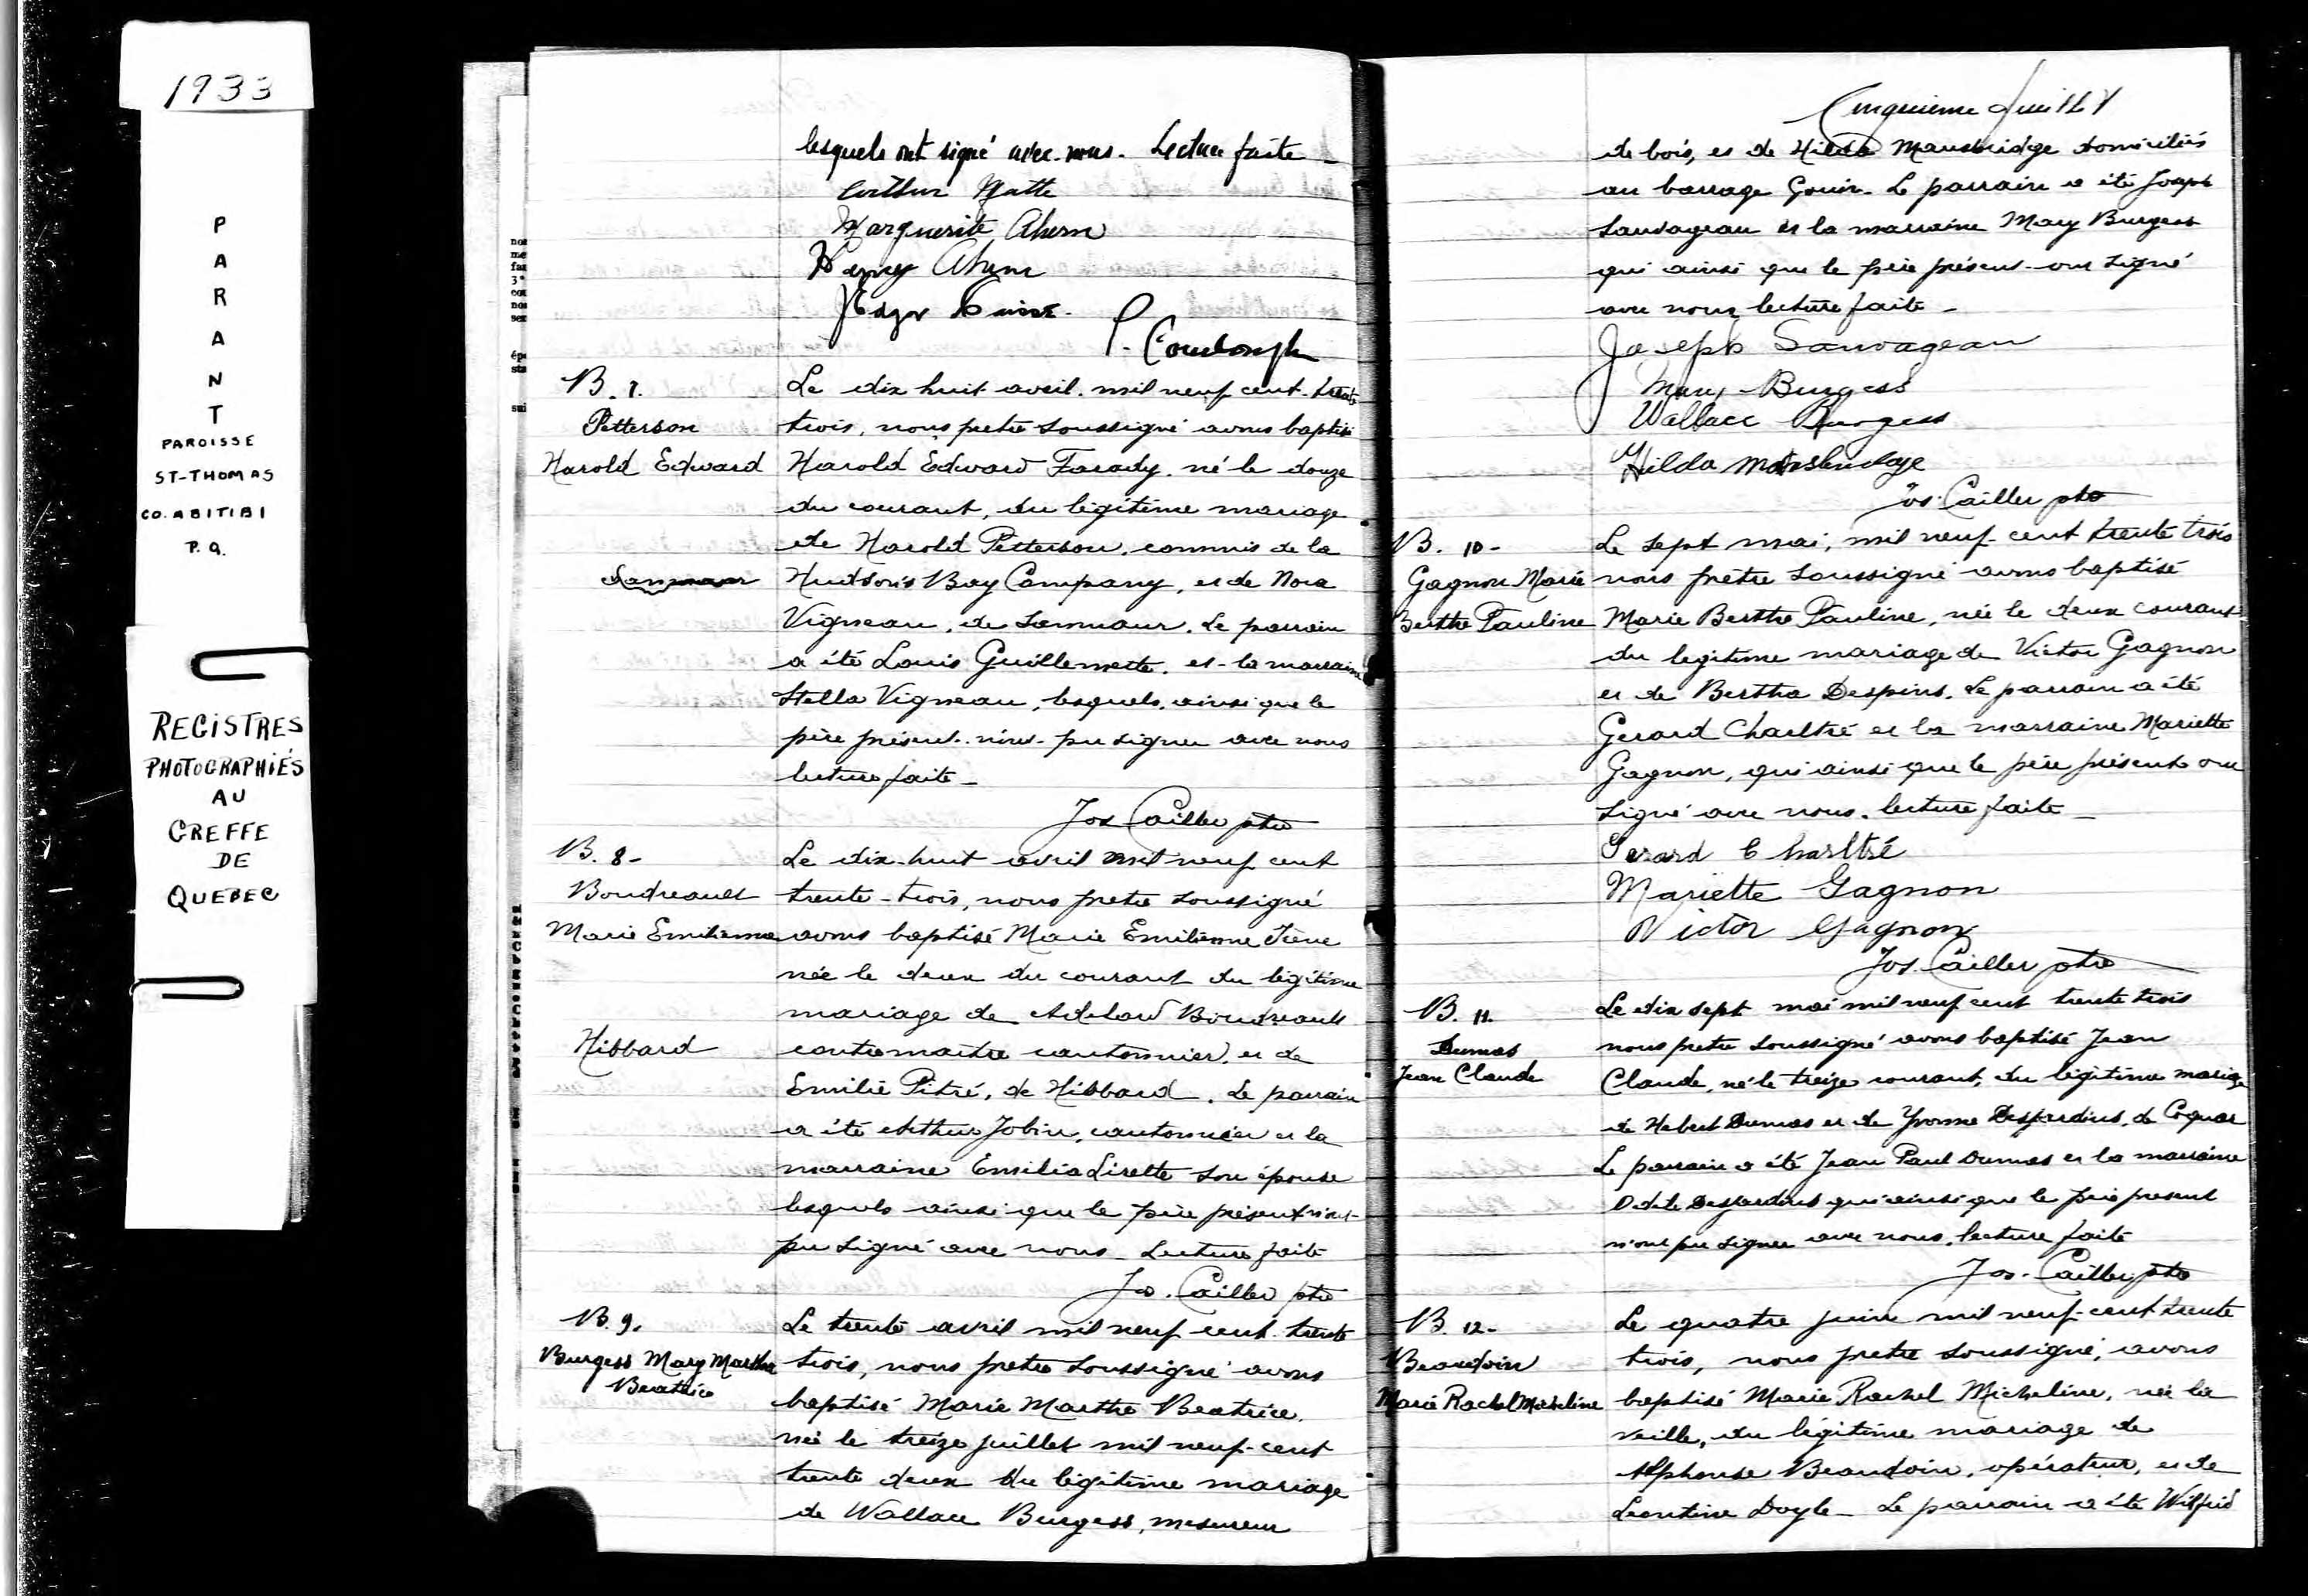 1933
P
A
R
A
N
T
PAROISSE
ST-THOMAS
CO. ABITIBI
P.Q.
REGISTRES
PHOTOGRAPHIÉS
AU
GREFFE
DE
QUEBEC
lesquels ont signé avec nous. Lecture faite
Arthur Matte
Marguerite Ahern
Henry Ahern
J Edgar
P.
B. 7.
Petterson
Harold Edward
Le dix huit avril mil neuf cent trente
trois, nous pretre soussigné avons baptisé
Harold Edward Farady né le douze
du courant, du légitime mariage
de Harold Petterson, commis de la
Hudson's Bay Company, et de Nora
Vigneau, de Sanmaur. Le parrain
a été Louis Guillemette et la marraine
Stella Vigneau, lesquels, ainsi que le
père présent n'ont pu signer avec nous
lecture faite
Jos Cailler ptre
Sanmaur
B. 8-
Boudreault
Marie Emilienne
Hibbard
Le dix-huit avril mil neuf cent
trente-trois, nous pretre soussigné
avons baptisé Marie Emilienne Irène
née le deux du courant du légitime
mariage de Adelard Boudreault
contremaitre cantonnier, et de
Emilie Pitré, de Hibbard. Le parrain
a été Arthur Jobin, cantonnier et la
marraine Emilia Lirette son épouse
lesquels ainsi que le père présent n'ont
pu signé avec nous Lecture faite
Jos. Cailler ptre
B. 9.
Burgess Mary Martha
Beatrice
Le trente avril mil neuf cent trente
trois, nous pretre soussigné avons
baptisé Marie Marthe Beatrice
née le treize juillet mil neuf-cent
trente deux du légitime mariage
de Wallace Burgess, mesureur
Cinquième feuillet
de bois, et de Hilda Mansbridge domiciliés
au barrage Gouin. Le parrain a été Joseph
Sauvageau et la marraine Mary Burgess
qui ainsi que le père présent ont signé
avec nous lecture faite
Joseph Sauvageau
Mary Burgess
Wallace Burgess
Hilda Mansbridge
Jos. Cailler ptre
B. 10-
Gagnon Marie
Berthe Pauline
Le sept mai, mil neuf cent trente trois
nous prêtre soussigné avons baptisé
Marie Berthe Pauline, née le deux courant
du legitime mariage de Victor Gagnon
et de Bertha Despins. Le parrain a été
Gerard Charltré et la marraine Mariette
Gagnon, qui ainsi que le père présent ont
signé avec nous. lecture faite
Gerard Charltré
Mariette Gagnon
Victor Gagnon
Jos. Cailler ptre
B. 11.
Dumas
Jean Claude
Le dix sept mai mil neuf cent trente trois
nous pretre soussigné avons baptisé Jean
Claude, né le treize courant, du légitime mariage
de Hebert Dumas et de Yvonne Desjardins, de Coquar
Le parrain a été Jean Paul Dumas et la marraine
Odile Desjardins qui ainsi que le père present
n'ont pu signer avec nous. lecture faite
Jos. Cailler ptre
B. 12-
Beaudoin
Marie Rachel Micheline
Le quatre juin mil neuf-cent trente
trois, nous pretre soussigné, avons
baptisé Marie Rachel Micheline, née la
veille, du légitime mariage de
Alphonse Beaudoin, opérateur, et de
Leontine Doyle. Le parrain a été Wilfrid